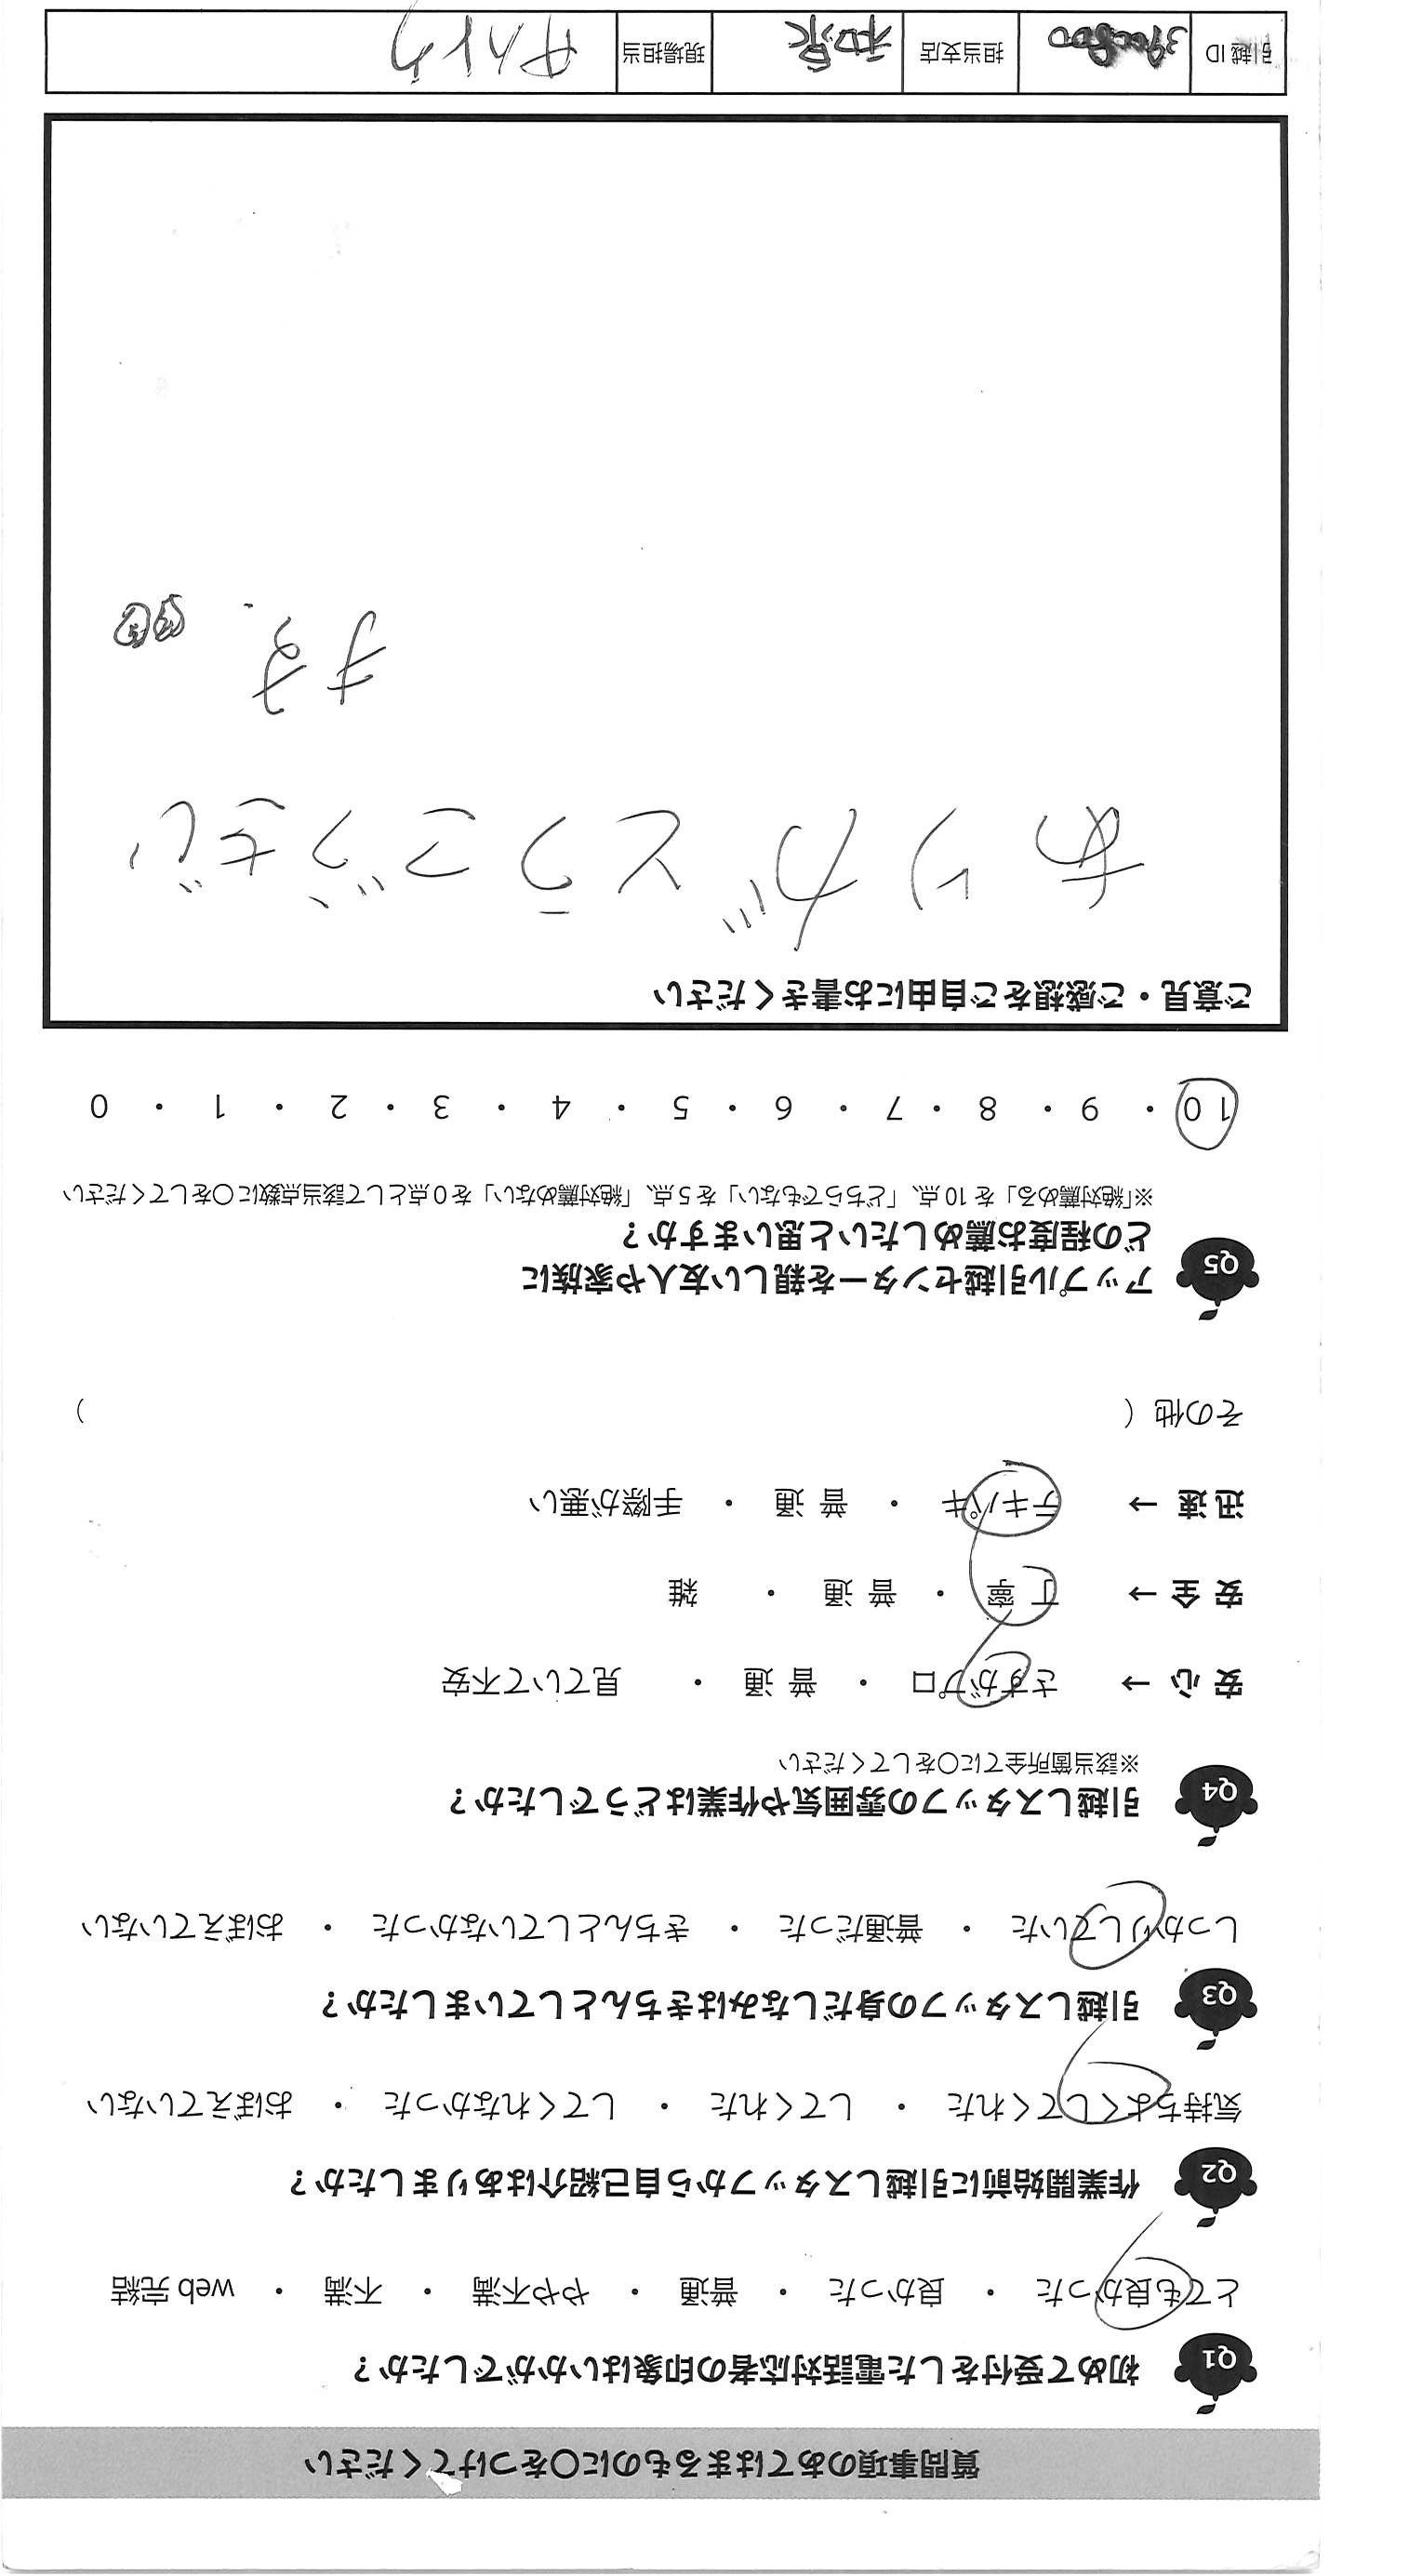 質問事項のあてはまるものに〇をつけてください
Q1 初めて受付をした電話対応者の印象はいかがでしたか？
とても良かった ・ 良かった ・ 普通 ・ やや不満 ・ 不満 ・ web 完結
Q2 作業開始前に引越しスタッフから自己紹介はありましたか？
気持ちよくしてくれた ・ してくれた ・ してくれなかった ・ おぼえていない
Q3 引越しスタッフの身だしなみはきちんとしていましたか？
しっかりしていた ・ 普通だった ・ きちんとしていなかった ・ おぼえていない
Q4 引越しスタッフの雰囲気や作業はどうでしたか？
※該当箇所全てに〇をしてください
安 心 → さすがプロ ・ 普 通 ・ 見ていて不安
安 全 → 丁 寧 ・ 普 通 ・ 雑
迅 速 → テキパキ ・ 普 通 ・ 手際が悪い
その他（ ）
Q5 アップル引越センターを親しい友人や家族に
どの程度お薦めしたいと思いますか？
※「絶対薦める」を 10 点、「どちらでもない」を 5 点、「絶対薦めない」を 0 点として該当点数に〇をしてください
10 ・ 9 ・ 8 ・ 7 ・ 6 ・ 5 ・ 4 ・ 3 ・ 2 ・ 1 ・ 0
ご意見・ご感想をご自由にお書きください
ありがとうござい
ます。
引越 ID 担当支店 和泉 現場担当